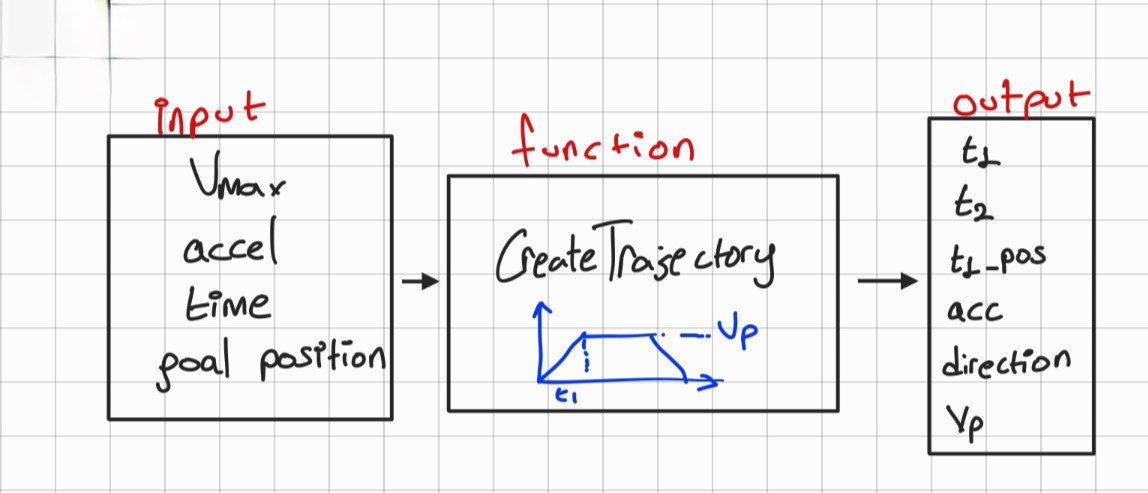 input
Vmax
accel
time
goal position
function
CreateTrajectory
Vp
t1
output
t1
t2
t1_pos
acc
direction
Vp